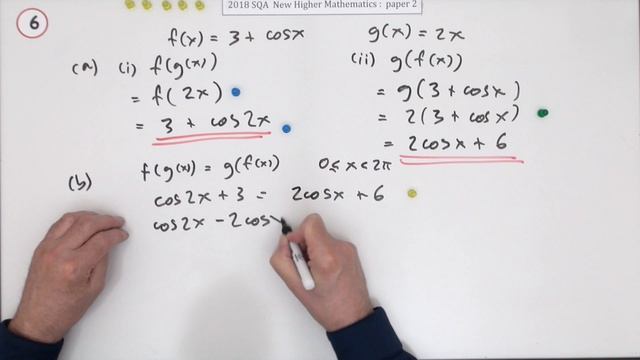 2018 SQA New Higher Mathematics : paper 2
6
f(x) = 3 + cosx
g(x) = 2x
(a) (i) f(g(x))
= f(2x)
= 3 + cos2x
(ii) g(f(x))
= g(3 + cosx)
= 2(3 + cosx)
= 2cosx + 6
(b) f(g(x)) = g(f(x)) 0 ≤ x < 2π
cos2x + 3 = 2cosx + 6
cos2x - 2cosx